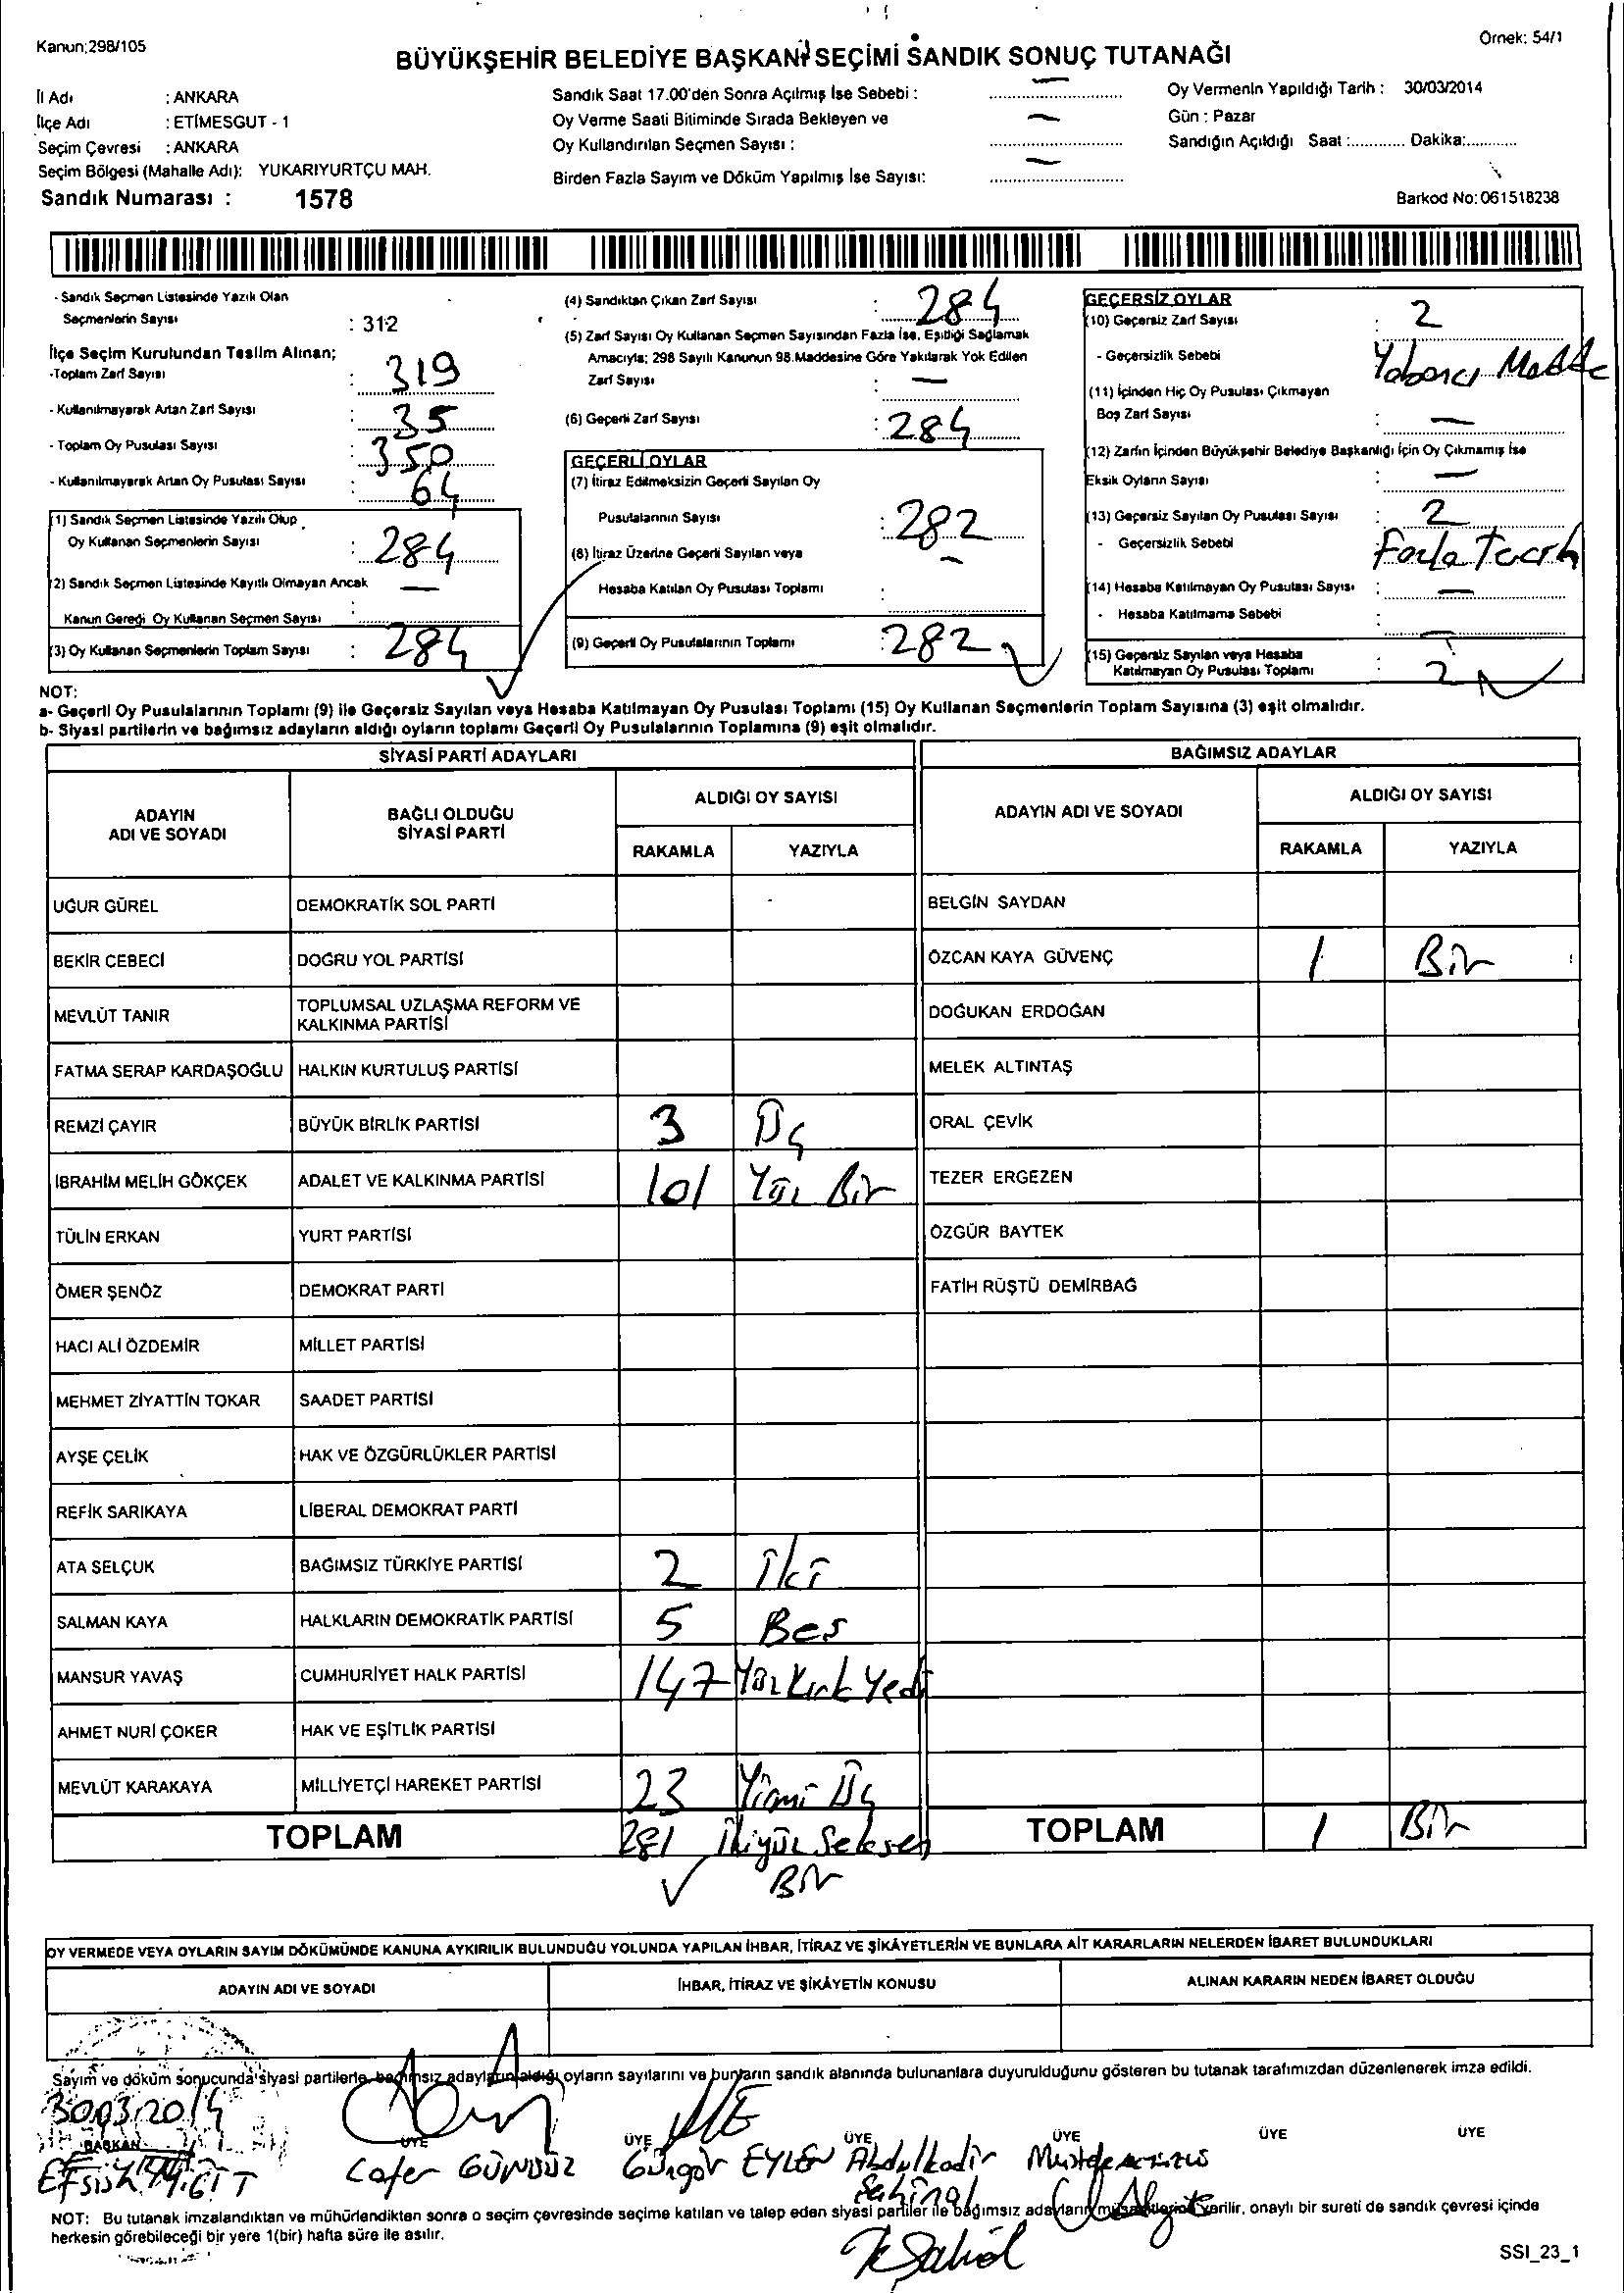 Kanun:298/105
Örnek: 54/1
BÜYÜKŞEHİR BELEDİYE BAŞKANI SEÇİMİ SANDIK SONUÇ TUTANAĞI
İl Adı : ANKARA
İlçe Adı : ETİMESGUT - 1
Seçim Çevresi : ANKARA
Seçim Bölgesi (Mahalle Adı): YUKARIYURTÇU MAH.
Sandık Numarası : 1578
Sandık Saat 17.00'den Sonra Açılmış İse Sebebi : —
Oy Verme Saati Bitiminde Sırada Bekleyen ve
Oy Kullandırılan Seçmen Sayısı : —
Birden Fazla Sayım ve Döküm Yapılmış İse Sayısı: —
Oy Vermenin Yapıldığı Tarih : 30/03/2014
Gün : Pazar
Sandığın Açıldığı Saat :............ Dakika:............
Barkod No: 061518238
- Sandık Seçmen Listesinde Yazılı Olan
Seçmenlerin Sayısı : 312
İlçe Seçim Kurulundan Teslim Alınan;
-Toplam Zarf Sayısı : 319
- Kullanılmayarak Artan Zarf Sayısı : 35
- Toplam Oy Pusulası Sayısı : 350
- Kullanılmayarak Artan Oy Pusulası Sayısı : 64
(1) Sandık Seçmen Listesinde Yazılı Olup
Oy Kullanan Seçmenlerin Sayısı : 284
(2) Sandık Seçmen Listesinde Kayıtlı Olmayan Ancak
Kanun Gereği Oy Kullanan Seçmen Sayısı : —
(3) Oy Kullanan Seçmenlerin Toplam Sayısı : 284
(4) Sandıktan Çıkan Zarf Sayısı : 284
(5) Zarf Sayısı Oy Kullanan Seçmen Sayısından Fazla İse, Eşitliği Sağlamak
Amacıyla; 298 Sayılı Kanunun 98.Maddesine Göre Yakılarak Yok Edilen
Zarf Sayısı : —
(6) Geçerli Zarf Sayısı : 284
GEÇERLİ OYLAR
(7) İtiraz Edilmeksizin Geçerli Sayılan Oy
Pusulalarının Sayısı : 282
(8) İtiraz Üzerine Geçerli Sayılan veya
Hesaba Katılan Oy Pusulası Toplamı : —
(9) Geçerli Oy Pusulalarının Toplamı : 282
GEÇERSİZ OYLAR
(10) Geçersiz Zarf Sayısı : 2
- Geçersizlik Sebebi Yabancı Madde
(11) İçinden Hiç Oy Pusulası Çıkmayan
Boş Zarf Sayısı : —
(12) Zarfın İçinden Büyükşehir Belediye Başkanlığı İçin Oy Çıkmamış İse
Eksik Oyların Sayısı : —
(13) Geçersiz Sayılan Oy Pusulası Sayısı : 2
- Geçersizlik Sebebi Fazla
(14) Hesaba Katılmayan Oy Pusulası Sayısı : —
- Hesaba Katılmama Sebebi : —
(15) Geçersiz Sayılan veya Hesaba
Katılmayan Oy Pusulası Toplamı : 2
NOT:
a- Geçerli Oy Pusulalarının Toplamı (9) ile Geçersiz Sayılan veya Hesaba Katılmayan Oy Pusulası Toplamı (15) Oy Kullanan Seçmenlerin Toplam Sayısına (3) eşit olmalıdır.
b- Siyasi partilerin ve bağımsız adayların aldığı oyların toplamı Geçerli Oy Pusulalarının Toplamına (9) eşit olmalıdır.
SİYASİ PARTİ ADAYLARI
BAĞIMSIZ ADAYLAR
ADAYIN ADI VE SOYADI BAĞLI OLDUĞU SİYASİ PARTİ ALDIĞI OY SAYISI RAKAMLA YAZIYLA
ADAYIN ADI VE SOYADI ALDIĞI OY SAYISI RAKAMLA YAZIYLA
UĞUR GÜREL DEMOKRATİK SOL PARTİ BELGİN SAYDAN
BEKİR CEBECİ DOĞRU YOL PARTİSİ ÖZCAN KAYA GÜVENÇ 1 Bir
MEVLÜT TANIR TOPLUMSAL UZLAŞMA REFORM VE KALKINMA PARTİSİ DOĞUKAN ERDOĞAN
FATMA SERAP KARDAŞOĞLU HALKIN KURTULUŞ PARTİSİ MELEK ALTINTAŞ
REMZİ ÇAYIR BÜYÜK BİRLİK PARTİSİ 3 Üç ORAL ÇEVİK
İBRAHİM MELİH GÖKÇEK ADALET VE KALKINMA PARTİSİ 101 Yüz Bir TEZER ERGEZEN
TÜLİN ERKAN YURT PARTİSİ ÖZGÜR BAYTEK
ÖMER ŞENÖZ DEMOKRAT PARTİ FATİH RÜŞTÜ DEMİRBAĞ
HACI ALİ ÖZDEMİR MİLLET PARTİSİ
MEHMET ZİYATTİN TOKAR SAADET PARTİSİ
AYŞE ÇELİK HAK VE ÖZGÜRLÜKLER PARTİSİ
REFİK SARIKAYA LİBERAL DEMOKRAT PARTİ
ATA SELÇUK BAĞIMSIZ TÜRKİYE PARTİSİ 2 İki
SALMAN KAYA HALKLARIN DEMOKRATİK PARTİSİ 5 Beş
MANSUR YAVAŞ CUMHURİYET HALK PARTİSİ 147 Yüz Kırk Yedi
AHMET NURİ ÇOKER HAK VE EŞİTLİK PARTİSİ
MEVLÜT KARAKAYA MİLLİYETÇİ HAREKET PARTİSİ 23 Yirmi Üç
TOPLAM 281 İkiyüz Seksen Bir TOPLAM 1 Bir
OY VERMEDE VEYA OYLARIN SAYIM DÖKÜMÜNDE KANUNA AYKIRILIK BULUNDUĞU YOLUNDA YAPILAN İHBAR, İTİRAZ VE ŞİKÂYETLERİN VE BUNLARA AİT KARARLARIN NELERDEN İBARET BULUNDUKLARI
ADAYIN ADI VE SOYADI İHBAR, İTİRAZ VE ŞİKÂYETİN KONUSU ALINAN KARARIN NEDEN İBARET OLDUĞU
Sayım ve döküm sonucunda siyasi partilerle bağımsız adayların aldığı oyların sayılarını ve bunların sandık alanında bulunanlara duyurulduğunu gösteren bu tutanak tarafımızdan düzenlenerek imza edildi.
30.03.2014
BAŞKAN ÜYE ÜYE ÜYE ÜYE ÜYE ÜYE
Cafer GÜNDÜZ Güngör EYLEN Abdulkadir Şahinol
NOT: Bu tutanak imzalandıktan ve mühürlendikten sonra o seçim çevresinde seçime katılan ve talep eden siyasi partiler ile bağımsız adayların müşahitlerine verilir, onaylı bir sureti de sandık çevresi içinde
herkesin görebileceği bir yere 1(bir) hafta süre ile asılır.
SSI_23_1